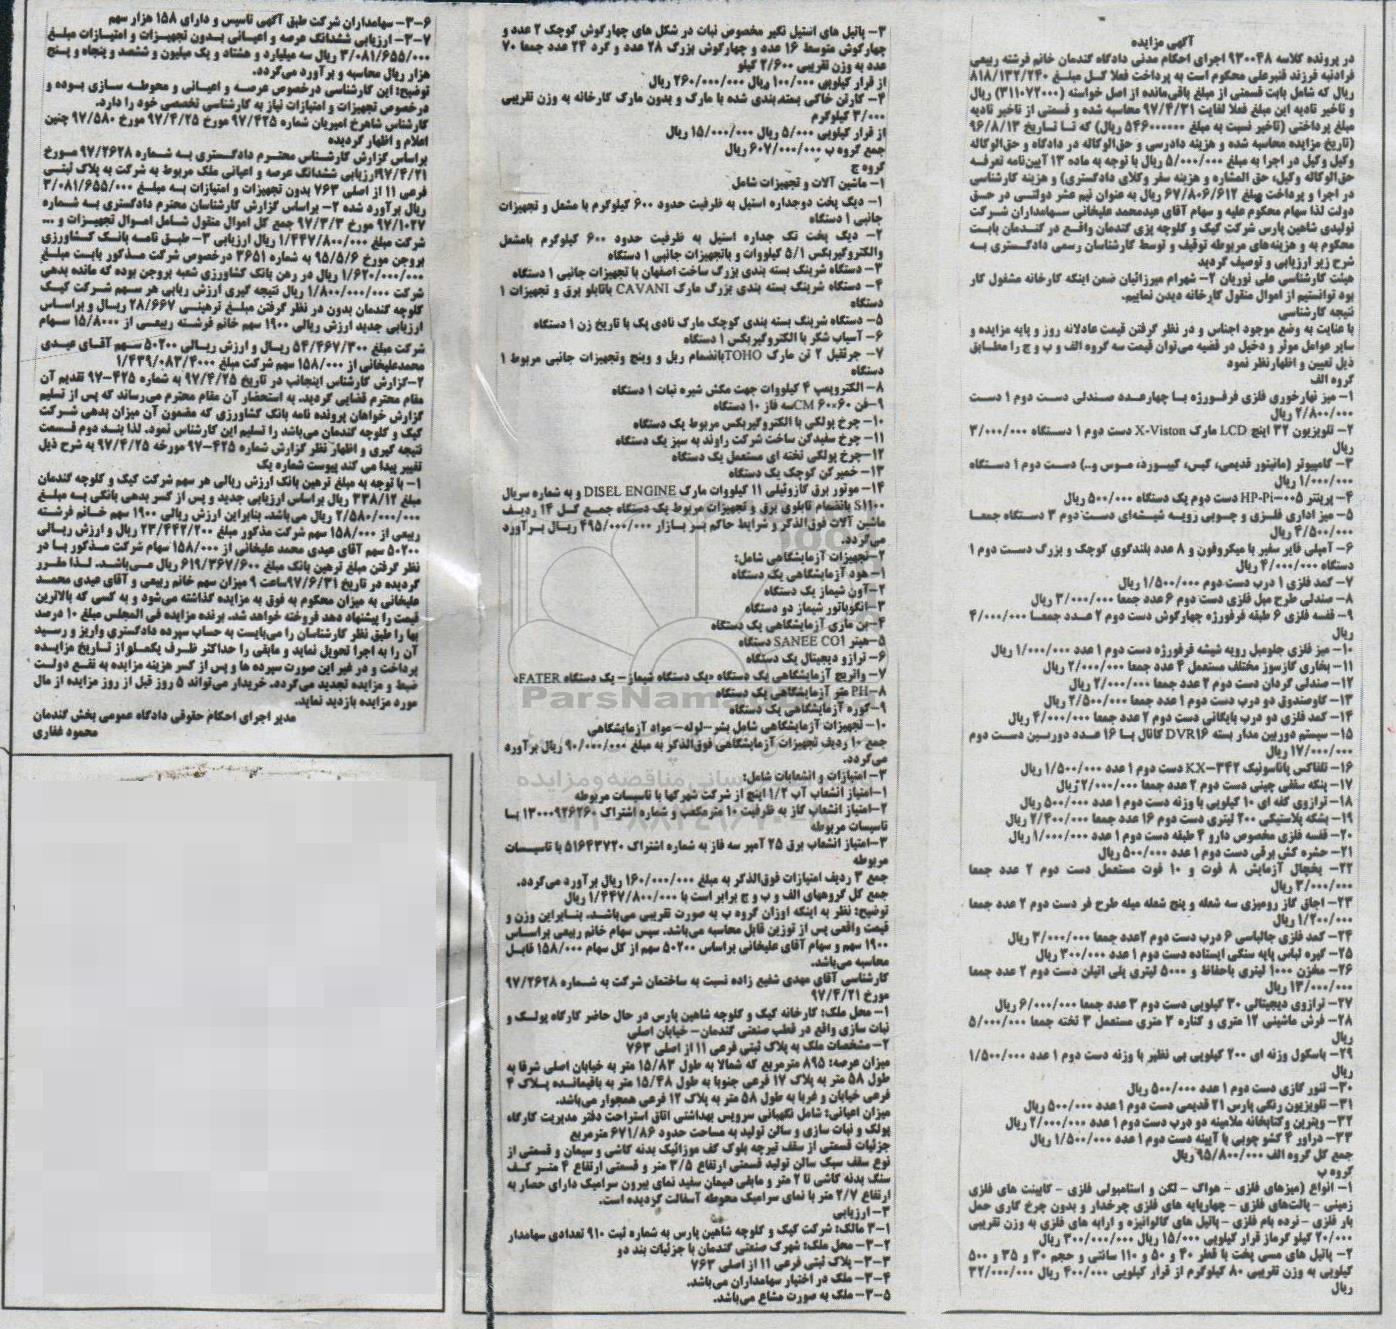 آگهی مزایده
در پرونده کلاسه ۹۳۰۰۴۸ اجرای احکام مدنی دادگاه گندمان خانم فرشته ربیعی
فرادنبه فرزند قنبرعلی محکوم است به پرداخت فعلا کل مبلغ ۸۱۸/۱۳۲/۲۴۰
ریال که شامل بابت قسمتی از مبلغ باقی‌مانده از اصل خواسته (۳۱۱۰۷۲۰۰۰) ریال
و تاخیر تادیه این مبلغ فعلا لغایت ۹۷/۴/۳۱ محاسبه شده و قسمتی از تاخیر تادیه
مبلغ پرداختی (تاخیر نسبت به مبلغ ۵۴۶۰۰۰۰۰۰ ریال) که تا تاریخ ۹۶/۸/۱۳
(تاریخ مزایده محاسبه شده و هزینه دادرسی و حق‌الوکاله در دادگاه و حق‌الوکاله
وکیل وکیل در اجرا به مبلغ ۵/۰۰۰/۰۰۰ ریال با توجه به ماده ۱۳ آیین‌نامه تعرفه
حق‌الوکاله وکیل، حق المشاره و هزینه سفر وکلای دادگستری) و هزینه کارشناسی
در اجرا و پرداخت مبلغ ۶۷/۸۰۶/۶۱۲ ریال به عنوان نیم عشر دولتی در حق
دولت لذا سهام محکوم علیه و سهام آقای عیدمحمد علیخانی سهامداران شرکت
تولیدی شاهین پارس شرکت کیک و کلوچه پزی گندمان واقع در گندمان بابت
محکوم به و هزینه‌های مربوطه توقیف و توسط کارشناسان رسمی دادگستری به
شرح زیر ارزیابی و توصیف گردید
هیئت کارشناسی علی نوریان ۲- شهرام میرزائیان ضمن اینکه کارخانه مشغول کار
بود توانستیم از اموال منقول کارخانه دیدن نماییم.
نتیجه کارشناسی
با عنایت به وضع موجود اجناس و در نظر گرفتن قیمت عادلانه روز و پایه مزایده و
سایر عوامل موثر و دخیل در قضیه می‌توان قیمت سه گروه الف و ب و ج را مطابق
ذیل تعیین و اظهارنظر نمود
گروه الف
۱- میز نهارخوری فلزی فرفورژه با چهارعدد صندلی دست دوم ۱ دست
۲/۸۰۰/۰۰۰ ریال
۲- تلویزیون ۳۲ اینچ LCD مارک X-Viston دست دوم ۱ دستگاه ۳/۰۰۰/۰۰۰
ریال
۳- کامپیوتر (مانیتور قدیمی، کیس، کیبورد، موس و..) دست دوم ۱ دستگاه
۱/۰۰۰/۰۰۰ ریال
۴- پرینتر HP-Pi-۰۰۵ دست دوم یک دستگاه ۵۰۰/۰۰۰ ریال
۵- میز اداری فلزی و چوبی رویه شیشه‌ای دست دوم ۳ دستگاه جمعا
۴/۵۰۰/۰۰۰ ریال
۶- آمپلی فایر سفیر با میکروفون و ۸ عدد بلندگوی کوچک و بزرگ دست دوم ۱
دستگاه ۴/۰۰۰/۰۰۰ ریال
۷- کمد فلزی ۱ درب دست دوم ۱/۵۰۰/۰۰۰ ریال
۸- صندلی طرح مبل فلزی دست دوم ۶ عدد جمعا ۳/۰۰۰/۰۰۰ ریال
۹- قفسه فلزی ۶ طبقه فرفورژه چهارگوش دست دوم ۲ عدد جمعا ۴/۰۰۰/۰۰۰
ریال
۱۰- میز فلزی جلومبل رویه شیشه فرفورژه دست دوم ۱ عدد ۱/۰۰۰/۰۰۰ ریال
۱۱- بخاری گازسوز مختلف مستعمل ۴ عدد جمعا ۲/۰۰۰/۰۰۰ ریال
۱۲- صندلی گردان دست دوم ۲ عدد جمعا ۲/۰۰۰/۰۰۰ ریال
۱۳- گاوصندوق دو درب دست دوم ۱ عدد جمعا ۲/۵۰۰/۰۰۰ ریال
۱۴- کمد فلزی دو درب بایگانی دست دوم ۲ عدد جمعا ۴/۰۰۰/۰۰۰ ریال
۱۵- سیستم دوربین مدار بسته DVR۱۶ کانال با ۱۶ عدد دوربین دست دوم
۱۷/۰۰۰/۰۰۰ ریال
۱۶- تلفاکس پاناسونیک KX-۳۴۲ دست دوم ۱ عدد ۱/۵۰۰/۰۰۰ ریال
۱۷- پنکه سقفی چینی دست دوم ۲ عدد جمعا ۲/۰۰۰/۰۰۰ ریال
۱۸- ترازوی کفه ای ۱۰ کیلویی با وزنه دست دوم ۱ عدد ۵۰۰/۰۰۰ ریال
۱۹- بشکه پلاستیکی ۲۰۰ لیتری دست دوم ۱۶ عدد جمعا ۲/۴۰۰/۰۰۰ ریال
۲۰- قفسه فلزی مخصوص دارو ۴ طبقه دست دوم ۱ عدد ۱/۰۰۰/۰۰۰ ریال
۲۱- حشره کش برقی دست دوم ۱ عدد ۵۰۰/۰۰۰ ریال
۲۲- یخچال آزمایش ۸ فوت و ۱۰ فوت مستعمل دست دوم ۲ عدد جمعا
۳/۰۰۰/۰۰۰ ریال
۲۳- اجاق گاز رومیزی سه شعله و پنج شعله میله طرح فر دست دوم ۲ عدد جمعا
۱/۲۰۰/۰۰۰ ریال
۲۴- کمد فلزی جالباسی ۶ درب دست دوم ۲عدد جمعا ۳/۰۰۰/۰۰۰ ریال
۲۵- گیره لباس پایه سنگی ایستاده دست دوم ۱ عدد ۳۰۰/۰۰۰ ریال
۲۶- مخزن ۱۰۰۰ لیتری باحفاظ و ۵۰۰۰ لیتری پلی اتیلن دست دوم ۲ عدد جمعا
۱۳/۰۰۰/۰۰۰ ریال
۲۷- ترازوی دیجیتالی ۳۰ کیلویی دست دوم ۳ عدد جمعا ۶/۰۰۰/۰۰۰ ریال
۲۸- فرش ماشینی ۱۲ متری و کناره ۳ متری مستعمل ۳ تخته جمعا ۵/۰۰۰/۰۰۰
ریال
۲۹- باسکول وزنه ای ۲۰۰ کیلویی بی نظیر با وزنه دست دوم ۱ عدد ۱/۵۰۰/۰۰۰
ریال
۳۰- تنور گازی دست دوم ۱ عدد ۵۰۰/۰۰۰ ریال
۳۱- تلویزیون رنگی پارس ۲۱ قدیمی دست دوم ۱ عدد ۵۰۰/۰۰۰ ریال
۳۲- ویترین و کتابخانه ملامینه دو درب دست دوم ۱ عدد ۲/۰۰۰/۰۰۰ ریال
۳۳- دراور ۴ کشو چوبی با آیینه دست دوم ۱ عدد ۱/۵۰۰/۰۰۰ ریال
جمع کل گروه الف ۹۵/۸۰۰/۰۰۰ ریال
گروه ب
۱- انواع (میزهای فلزی - هواک - لگن و استامبولی فلزی - کابینت های فلزی
زمینی - پالت‌های فلزی - چهارپایه های فلزی چرخدار و بدون چرخ گاری حمل
بار فلزی - نرده بام فلزی - پاتیل های گالوانیزه و ارابه های فلزی به وزن تقریبی
۲۰/۰۰۰ کیلو گرماز قرار کیلویی ۱۵/۰۰۰ ریال ۳۰۰/۰۰۰/۰۰۰ ریال
۲- پاتیل های مسی پخت با قطر ۴۰ و ۵۰ و ۱۱۰ سانتی و حجم ۳۰ و ۳۵ و ۵۰۰
کیلویی به وزن تقریبی ۸۰ کیلوگرم از قرار کیلویی ۴۰۰/۰۰۰ ریال ۳۲/۰۰۰/۰۰۰
ریال
۳- پاتیل های استیل نگیر مخصوص نبات در شکل های چهارگوش کوچک ۲ عدد و
چهارگوش متوسط ۱۶ عدد و چهارگوش بزرگ ۲۸ عدد و گرد ۲۴ عدد جمعا ۷۰
عدد به وزن تقریبی ۲/۶۰۰ کیلو
از قرار کیلویی ۱۰۰/۰۰۰ ریال ۲۶۰/۰۰۰/۰۰۰ ریال
۴- کارتن خاکی بسته‌بندی شده با مارک و بدون مارک کارخانه به وزن تقریبی
۳/۰۰۰ کیلوگرم
از قرار کیلویی ۵/۰۰۰ ریال ۱۵/۰۰۰/۰۰۰ ریال
جمع گروه ب ۶۰۷/۰۰۰/۰۰۰ ریال
گروه ج
۱- ماشین آلات و تجهیزات شامل
۱- دیگ پخت دوجداره استیل به ظرفیت حدود ۶۰۰ کیلوگرم با مشعل و تجهیزات
جانبی ۱ دستگاه
۲- دیگ پخت تک جداره استیل به ظرفیت حدود ۶۰۰ کیلوگرم بامشعل
والکتروگیربکس ۵/۱ کیلووات و باتجهیزات جانبی ۱ دستگاه
۳- دستگاه شرینگ بسته بندی بزرگ ساخت اصفهان با تجهیزات جانبی ۱ دستگاه
۴- دستگاه شرینگ بسته بندی بزرگ مارک CAVANI باتابلو برق و تجهیزات ۱
دستگاه
۵- دستگاه شرینگ بسته بندی کوچک مارک نادی پک با تاریخ زن ۱ دستگاه
۶- آسیاب شکر با الکتروگیربکس ۱ دستگاه
۷- جرثقیل ۲ تن مارک TOHOبانضمام ریل و وینچ وتجهیزات جانبی مربوط ۱
دستگاه
۸- الکتروپمپ ۴ کیلووات جهت مکش شیره نبات ۱ دستگاه
۹-فن ۶۰×۶۰ CMسه فاز ۱۰ دستگاه
۱۰- چرخ پولکی با الکتروگیربکس مربوط یک دستگاه
۱۱- چرخ سفیدکن ساخت شرکت راوند به سبز یک دستگاه
۱۲-چرخ پولکی تخته ای مستعمل یک دستگاه
۱۳- خمیرکن کوچک یک دستگاه
۱۴- موتور برق گازوئیلی ۱۱ کیلووات مارک DISEL ENGINE و به شماره سریال
S۱۱۰۰ بانضمام تابلوی برق و تجهیزات مربوط یک دستگاه جمع کل ۱۴ ردیف
ماشین آلات فوق‌الذکر و شرایط حاکم بر بازار ۴۹۵/۰۰۰/۰۰۰ ریال برآورد
می‌گردد.
۲-تجهیزات آزمایشگاهی شامل:
۱- هود آزمایشگاهی یک دستگاه
۲-آون شیماز یک دستگاه
۳-انگوباتور شیماز دو دستگاه
۴-بن ماری آزمایشگاهی یک دستگاه
۵-هیتر SANEE CO۱ دستگاه
۶- ترازو دیجیتال یک دستگاه
۷- وانریچ آزمایشگاهی یک دستگاه «یک دستگاه شیماز- یک دستگاه FATER»
۸-PH متر آزمایشگاهی یک دستگاه
۹-کوره آزمایشگاهی یک دستگاه
۱۰- تجهیزات آزمایشگاهی شامل بشر-لوله- مواد آزمایشگاهی
جمع ۱۰ ردیف تجهیزات آزمایشگاهی فوق‌الذکر به مبلغ ۹۰/۰۰۰/۰۰۰ ریال برآورد
می‌گردد.
۳- امتیازات و انشعابات شامل:
۱-امتیاز انشعاب آب ۱/۲ اینچ از شرکت شهرکها با تاسیسات مربوطه
۲-امتیاز انشعاب گاز به ظرفیت ۱۰ مترمکعب و شماره اشتراک ۱۳۰۰۰۹۲۶۲۶۰ با
تاسیسات مربوطه
۳-امتیاز انشعاب برق ۲۵ آمپر سه فاز به شماره اشتراک ۵۱۶۴۳۷۲۰ با تاسیسات
مربوطه
جمع ۳ ردیف امتیازات فوق‌الذکر به مبلغ ۱۶۰/۰۰۰/۰۰۰ ریال برآورد می‌گردد.
جمع کل گروههای الف و ب و ج برابر است با ۱/۴۴۷/۸۰۰/۰۰۰ ریال
توضیح: نظر به اینکه اوزان گروه ب به صورت تقریبی می‌باشد. بنابراین وزن و
قیمت واقعی پس از توزین قابل محاسبه می‌باشد. سپس سهام خانم ربیعی براساس
۱۹۰۰ سهم و سهام آقای علیخانی براساس ۵۰۲۰۰ سهم از کل سهام ۱۵۸/۰۰۰ قابل
محاسبه می‌باشد.
کارشناسی آقای مهدی شفیع زاده نسبت به ساختمان شرکت به شماره ۹۷/۲۶۲۸
مورخ ۹۷/۴/۲۱
۱- محل ملک: کارخانه کیک و کلوچه شاهین پارس در حال حاضر کارگاه پولک و
نبات سازی واقع در قطب صنعتی گندمان- خیابان اصلی
۲- مشخصات ملک به پلاک ثبتی فرعی ۱۱ از اصلی ۷۶۳
میزان عرصه: ۸۹۵ مترمربع که شمالا به طول ۱۵/۸۳ متر به خیابان اصلی شرقا به
طول ۵۸ متر به پلاک ۱۷ فرعی جنوبا به طول ۱۵/۴۸ متر به باقیمانده پلاک ۴
فرعی خیابان و غربا به طول ۵۸ متر به پلاک ۱۲ فرعی همجوار می‌باشد.
میزان اعیانی: شامل نگهبانی سرویس بهداشتی اتاق استراحت دفتر مدیریت کارگاه
پولک و نبات سازی و سالن تولید به مساحت حدود ۶۷۱/۸۶ مترمربع
جزئیات قسمتی از سقف تیرچه بلوک کف موزائیک بدنه کاشی و سیمان و قسمتی از
نوع سقف سبک سالن تولید قسمتی ارتفاع ۳/۵ متر و قسمتی ارتفاع ۴ متر کف
سنگ بدنه کاشی تا ۲ متر و مابقی سیمان سفید نمای بیرون سرامیک دارای حصار به
ارتفاع ۲/۷ متر با نمای سرامیک محوطه آسفالت گردیده است.
۳- ارزیابی
۳-۱ مالک: شرکت کیک و کلوچه شاهین پارس به شماره ثبت ۹۱۰ تعدادی سهامدار
۳-۲- محل ملک: شهرک صنعتی گندمان با جزئیات بند دو
۳-۳- پلاک ثبتی فرعی ۱۱ از اصلی ۷۶۳
۳-۴- ملک در اختیار سهامداران می‌باشد.
۳-۵- ملک به صورت مشاع می‌باشد.
۳-۶- سهامداران شرکت طبق آگهی تاسیس و دارای ۱۵۸ هزار سهم
۳-۷- ارزیابی ششدانگ عرصه و اعیانی بدون تجهیزات و امتیازات مبلغ
۳/۰۸۱/۶۵۵/۰۰۰ ریال سه میلیارد و هشتاد و یک میلیون و ششصد و پنجاه و پنج
هزار ریال محاسبه و برآورد می‌گردد.
توضیح: این کارشناسی درخصوص عرصه و اعیانی و محوطه سازی بوده و
درخصوص تجهیزات و امتیازات نیاز به کارشناسی تخصصی خود را دارد.
کارشناس شاهرخ امیریان شماره ۹۷/۴۲۵ مورخ ۹۷/۴/۲۵ مورخ ۹۷/۵۸۰ چنین
اعلام و اظهار گردیده
براساس گزارش کارشناس محترم دادگستری به شماره ۹۷/۲۶۲۸ مورخ
۹۷/۴/۲۱ارزیابی ششدانگ عرصه و اعیانی ملک مربوط به شرکت به پلاک ثبتی
فرعی ۱۱ از اصلی ۷۶۳ بدون تجهیزات و امتیازات به مبلغ ۳/۰۸۱/۶۵۵/۰۰۰
ریال برآورد شده ۲- براساس گزارش کارشناسان محترم دادگستری به شماره
۹۷/۱۰۲۷ مورخ ۹۷/۳/۳ جمع کل اموال منقول شامل اموال تجهیزات و ...
شرکت مبلغ ۱/۴۴۷/۸۰۰/۰۰۰ ریال ارزیابی ۳- طبق نامه بانک کشاورزی
بروجن مورخ ۹۵/۵/۶ به شماره ۳۶۵۱ درخصوص شرکت مذکور بابت مبلغ
۱/۶۲۰/۰۰۰/۰۰۰ ریال در رهن بانک کشاورزی شعبه بروجن بوده که مانده بدهی
شرکت ۱/۸۰۰/۰۰۰/۰۰۰ ریال نتیجه گیری ارزش ریابی هر سهم شرکت کیک
کلوچه گندمان بدون در نظر گرفتن مبلغ ترهینی ۲۸/۶۶۷ ریال و براساس
ارزیابی جدید ارزش ریالی ۱۹۰۰ سهم خانم فرشته ربیعی از ۱۵/۸۰۰۰ سهام
شرکت مبلغ ۵۴/۴۶۷/۳۰۰ ریال و ارزش ریالی ۵۰۲۰۰ سهم آقای عیدی
محمدعلیخانی از ۱۵۸/۰۰۰ سهم شرکت مبلغ ۱/۴۳۹/۰۸۳/۴۰۰۰
۲-گزارش کارشناس اینجانب در تاریخ ۹۷/۴/۲۵ به شماره ۴۲۵-۹۷ تقدیم آن
مقام محترم قضایی گردید. به استحضار آن مقام محترم می‌رساند که پس از تسلیم
گزارش خواهان پرونده نامه بانک کشاورزی که مضمون آن میزان بدهی شرکت
کیک و کلوچه گندمان می‌باشد را تسلیم این کارشناس نمود. لذا بند دوم قسمت
نتیجه گیری و اظهار نظر گزارش شماره ۴۲۵-۹۷ مورخه ۹۷/۴/۲۵ به شرح ذیل
تغییر پیدا می کند پیوست شماره یک
۱- با توجه به مبلغ ترهین بانک ارزش ریالی هر سهم شرکت کیک و کلوچه گندمان
مبلغ ۳۳۸/۱۲ ریال براساس ارزیابی جدید و پس از کسر بدهی بانکی به مبلغ
۲/۵۸۰/۰۰۰/۰۰۰ ریال می‌باشد. بنابراین ارزش ریالی ۱۹۰۰ سهم خانم فرشته
ربیعی از ۱۵۸/۰۰۰ سهم شرکت مذکور مبلغ ۲۳/۴۴۲/۲۰۰ ریال و ارزش ریالی
۵۰۲۰۰ سهم آقای عیدی محمد علیخانی از ۱۵۸/۰۰۰ سهام شرکت مذکور با در
نظر گرفتن مبلغ ترهین بانک مبلغ ۶۱۹/۳۶۷/۶۰۰ ریال می‌باشد. لذا مقرر
گردیده در تاریخ ۹۷/۶/۳۱ساعت ۹ میزان سهم خانم ربیعی و آقای عیدی محمد
علیخانی به میزان محکوم به فوق به مزایده گذاشته می‌شود و به کسی که بالاترین
قیمت را پیشنهاد دهد فروخته خواهد شد. برنده مزایده فی المجلس مبلغ ۱۰ درصد
بها را طبق نظر کارشناسان را می‌بایست به حساب سپرده دادگستری واریز و رسید
آن را به اجرا تحویل نماید و مابقی را حداکثر ظرف یکماه از تاریخ مزایده
پرداخت و در غیر این صورت سپرده ها و پس از کسر هزینه مزایده به نفع دولت
ضبط و مزایده تجدید می‌گردد. خریدار می‌تواند ۵ روز قبل از روز مزایده از مال
مورد مزایده بازدید نماید.
مدیر اجرای احکام حقوقی دادگاه عمومی بخش گندمان
محمود غفاری